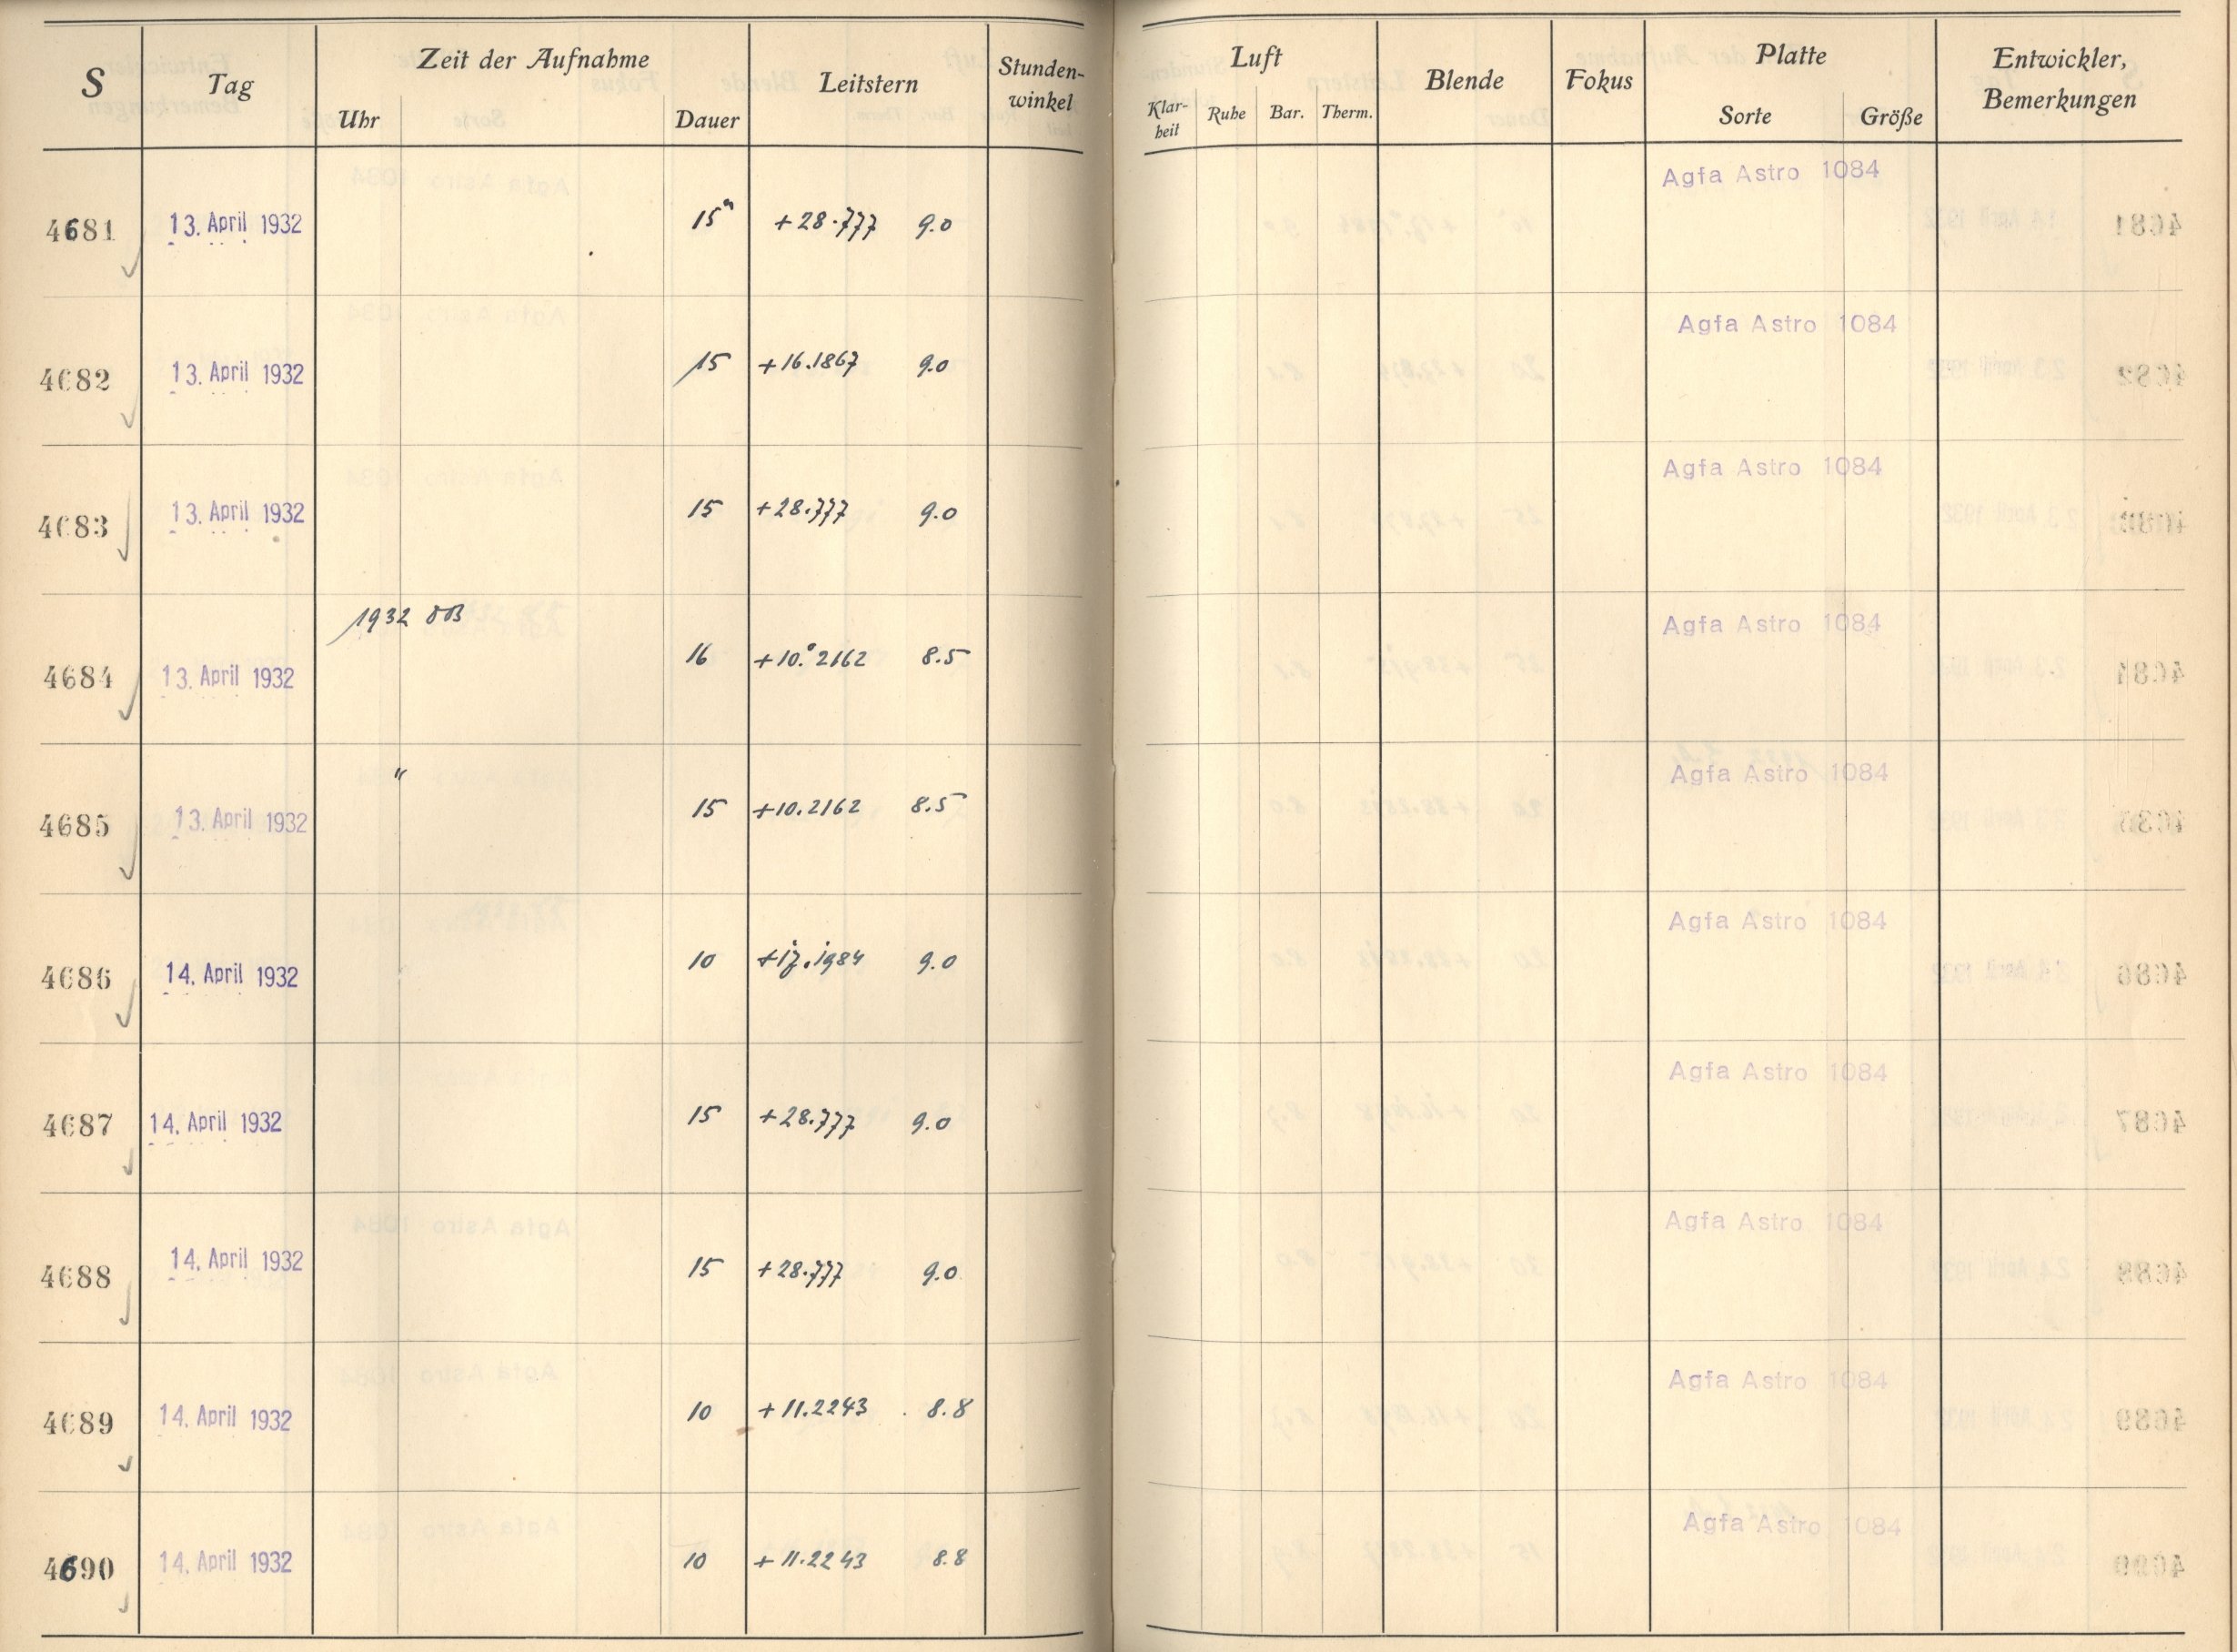 S Tag Zeit der Aufnahme Leitstern Stunden- Luft Blende Fokus Platte Entwickler,
Uhr Dauer winkel Klar- Ruhe Bar. Therm. Sorte Größe Bemerkungen
heit
Agfa Astro 1084
4681 13. April 1932 15m +28.777 9.0
Agfa Astro 1084
4682 13. April 1932 15 +16.1867 9.0
Agfa Astro 1084
4683 13. April 1932 15 +28.777 9.0
1932 Agfa Astro 1084
4684 13. April 1932 16 +10.°2162 8.5
" Agfa Astro 1084
4685 13. April 1932 15 +10.2162 8.5
Agfa Astro 1084
4686 14. April 1932 10 +17.1984 9.0
Agfa Astro 1084
4687 14. April 1932 15 +28.777 9.0
Agfa Astro 1084
4688 14. April 1932 15 +28.777 9.0
Agfa Astro 1084
4689 14. April 1932 10 +11.2243 8.8
Agfa Astro 1084
4690 14. April 1932 10 +11.2243 8.8